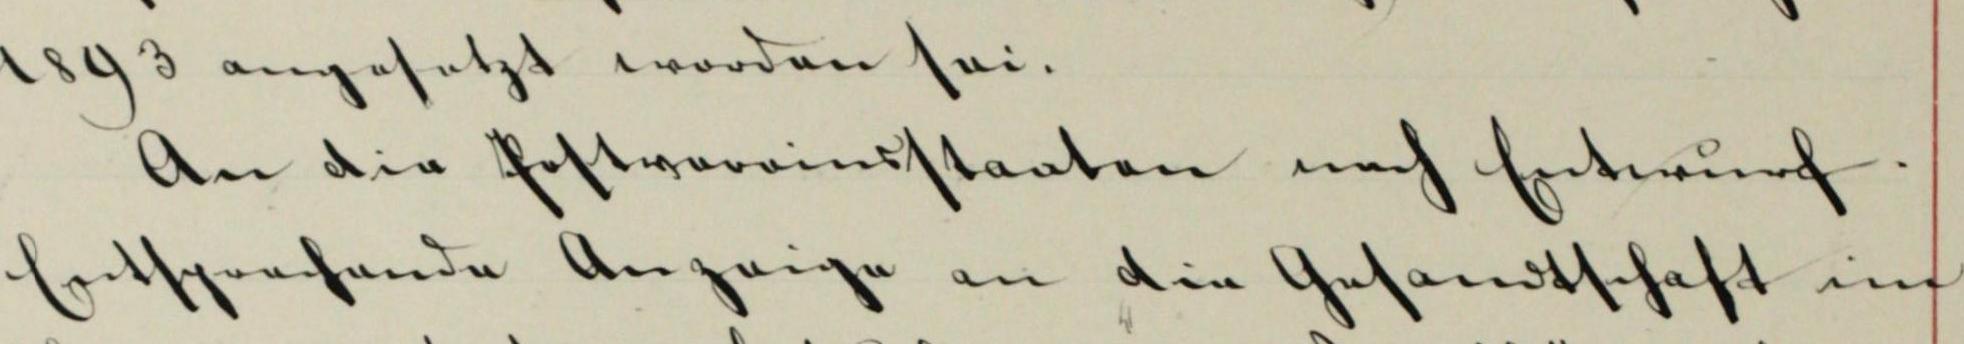 1893 angesetzt worden sei.
An die Postvereinsstaaten nach Entwurf.
Entsprechende Anzeige an die Gesandtschaft im